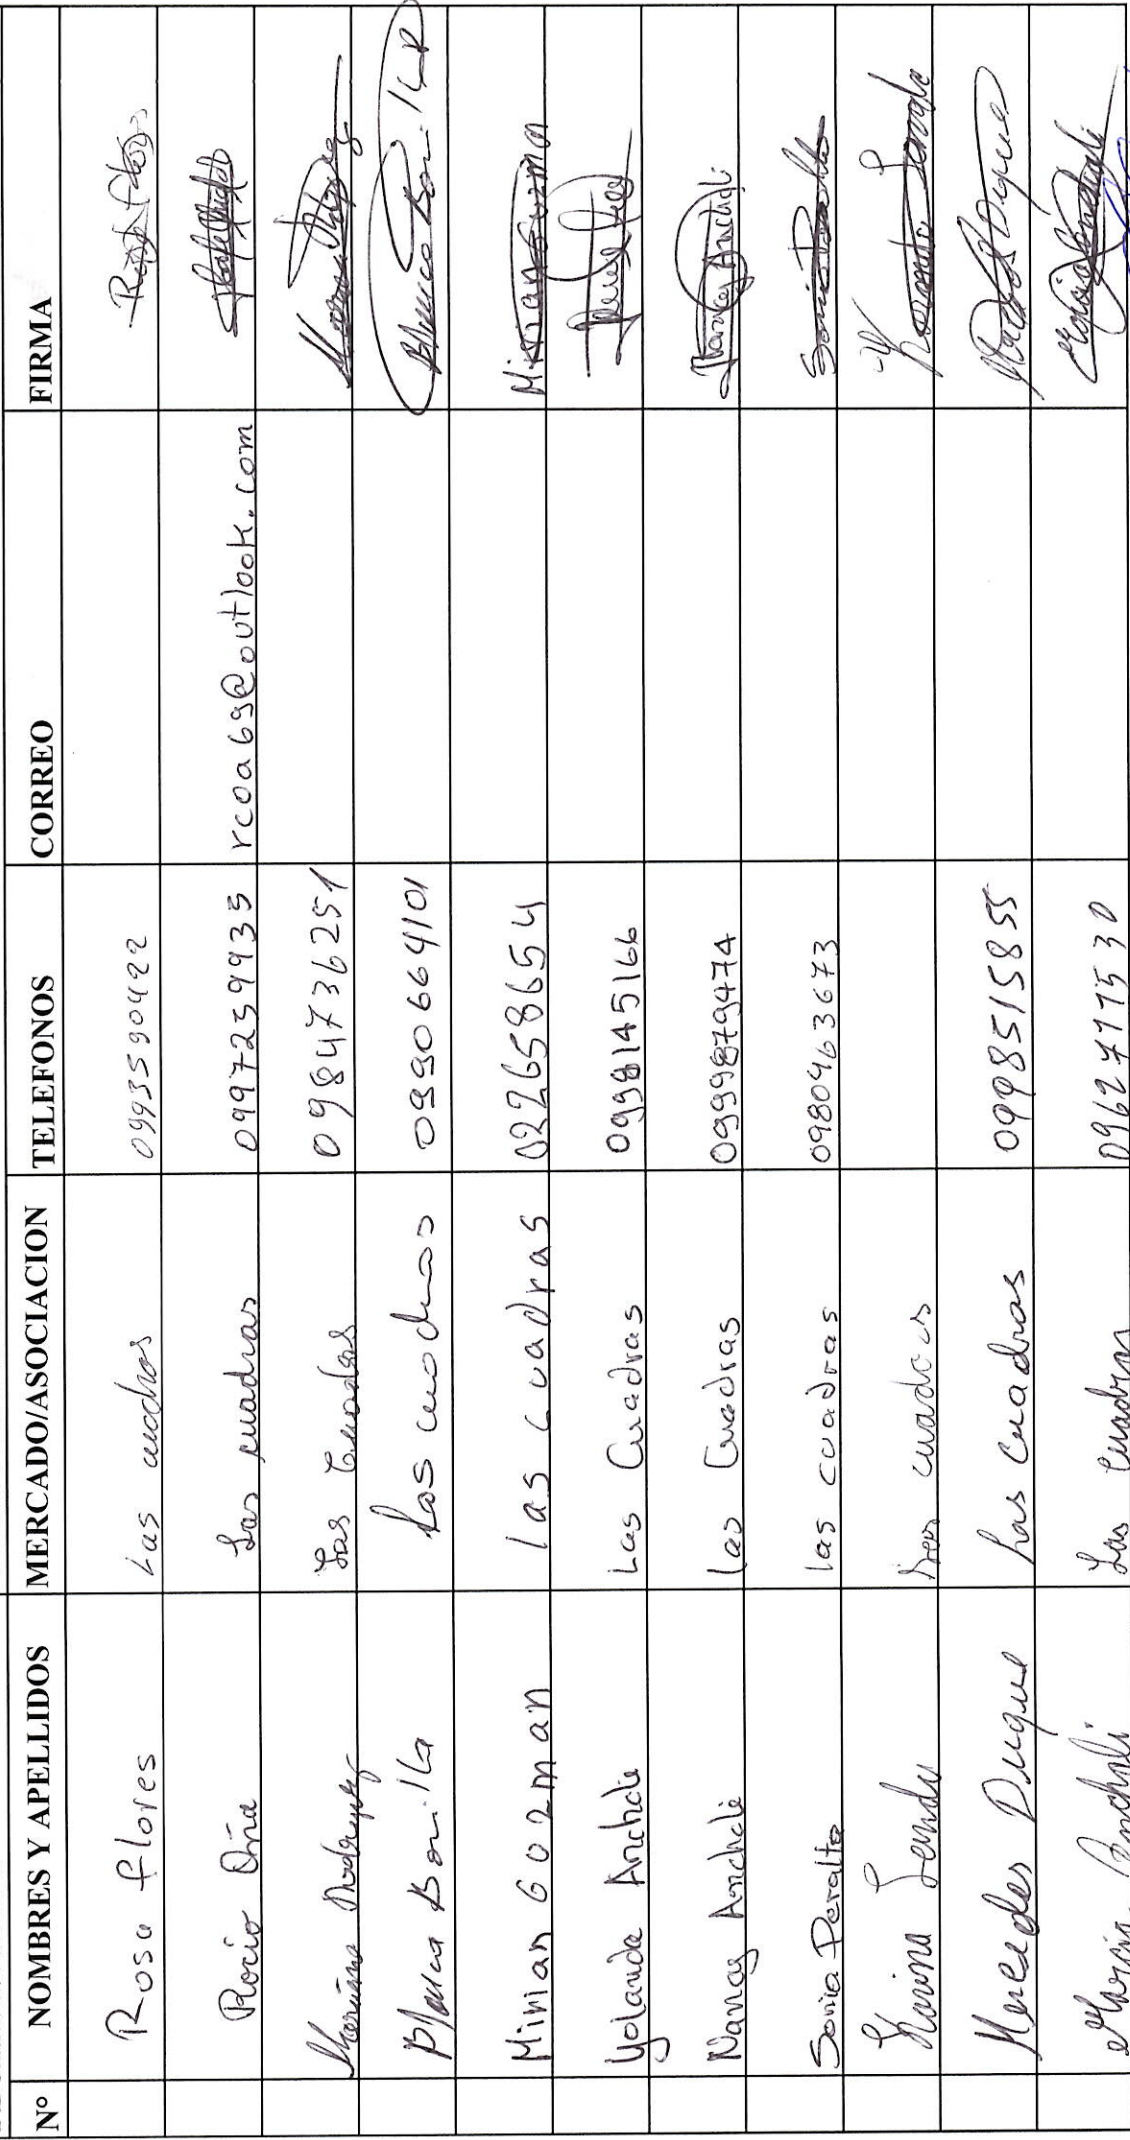 N° NOMBRES Y APELLIDOS MERCADO/ASOCIACION TELEFONOS CORREO FIRMA
Rosa flores Las cuadras 0993590422 Rosa flores
Rocio Oña Las cuadras 0997259935 rcoa69@outlook.com
Las Cuadas 0984736251
Blanca Bonilla Las cuadras 0990664101 Blanca Bonilla
Mirian Guzman las cuadras 022658654 Mirian Guzman
Yolanda Anchali Las Cuadras 0998145166
Nancy Anchali Las Cuadras 0999879474 Nancy Anchali
Sonia Peralta las cuadras 0980963673 Sonia Peralta
Karina cuadras
Mercedes Duque Las Cuadras 0998515855
Anchali Las Cuadras 0962777530